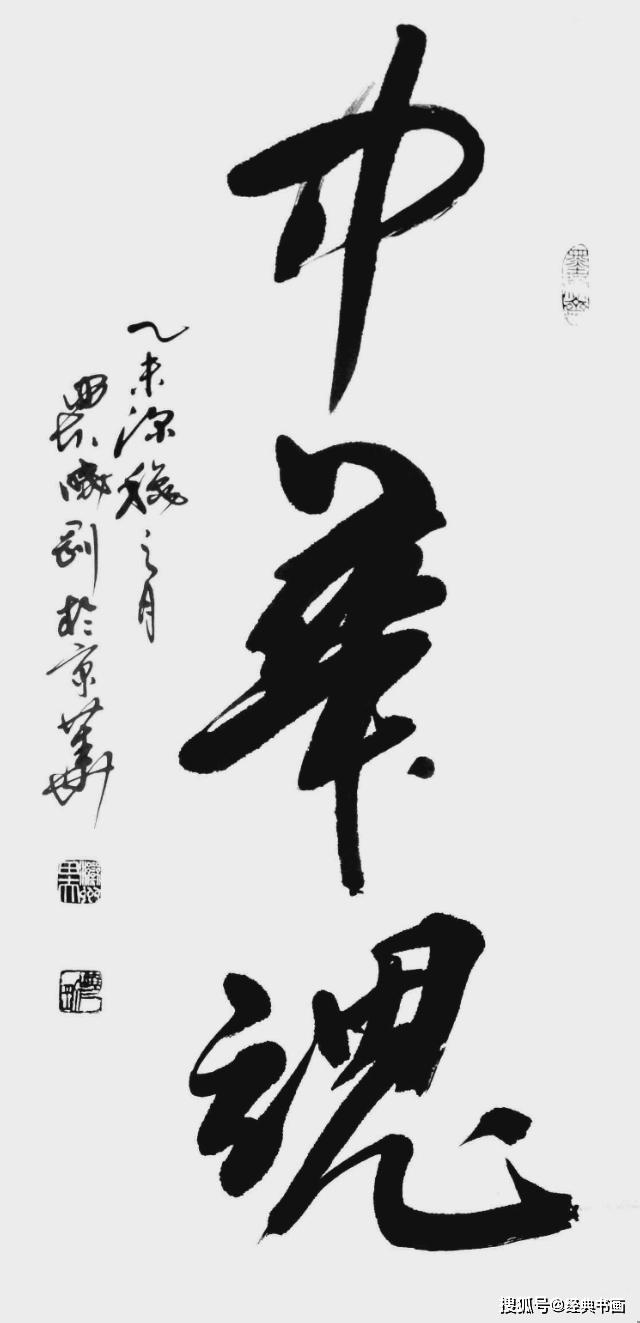 中華魂
乙未深穐之月
農勝剛於京華
搜狐号@经典书画